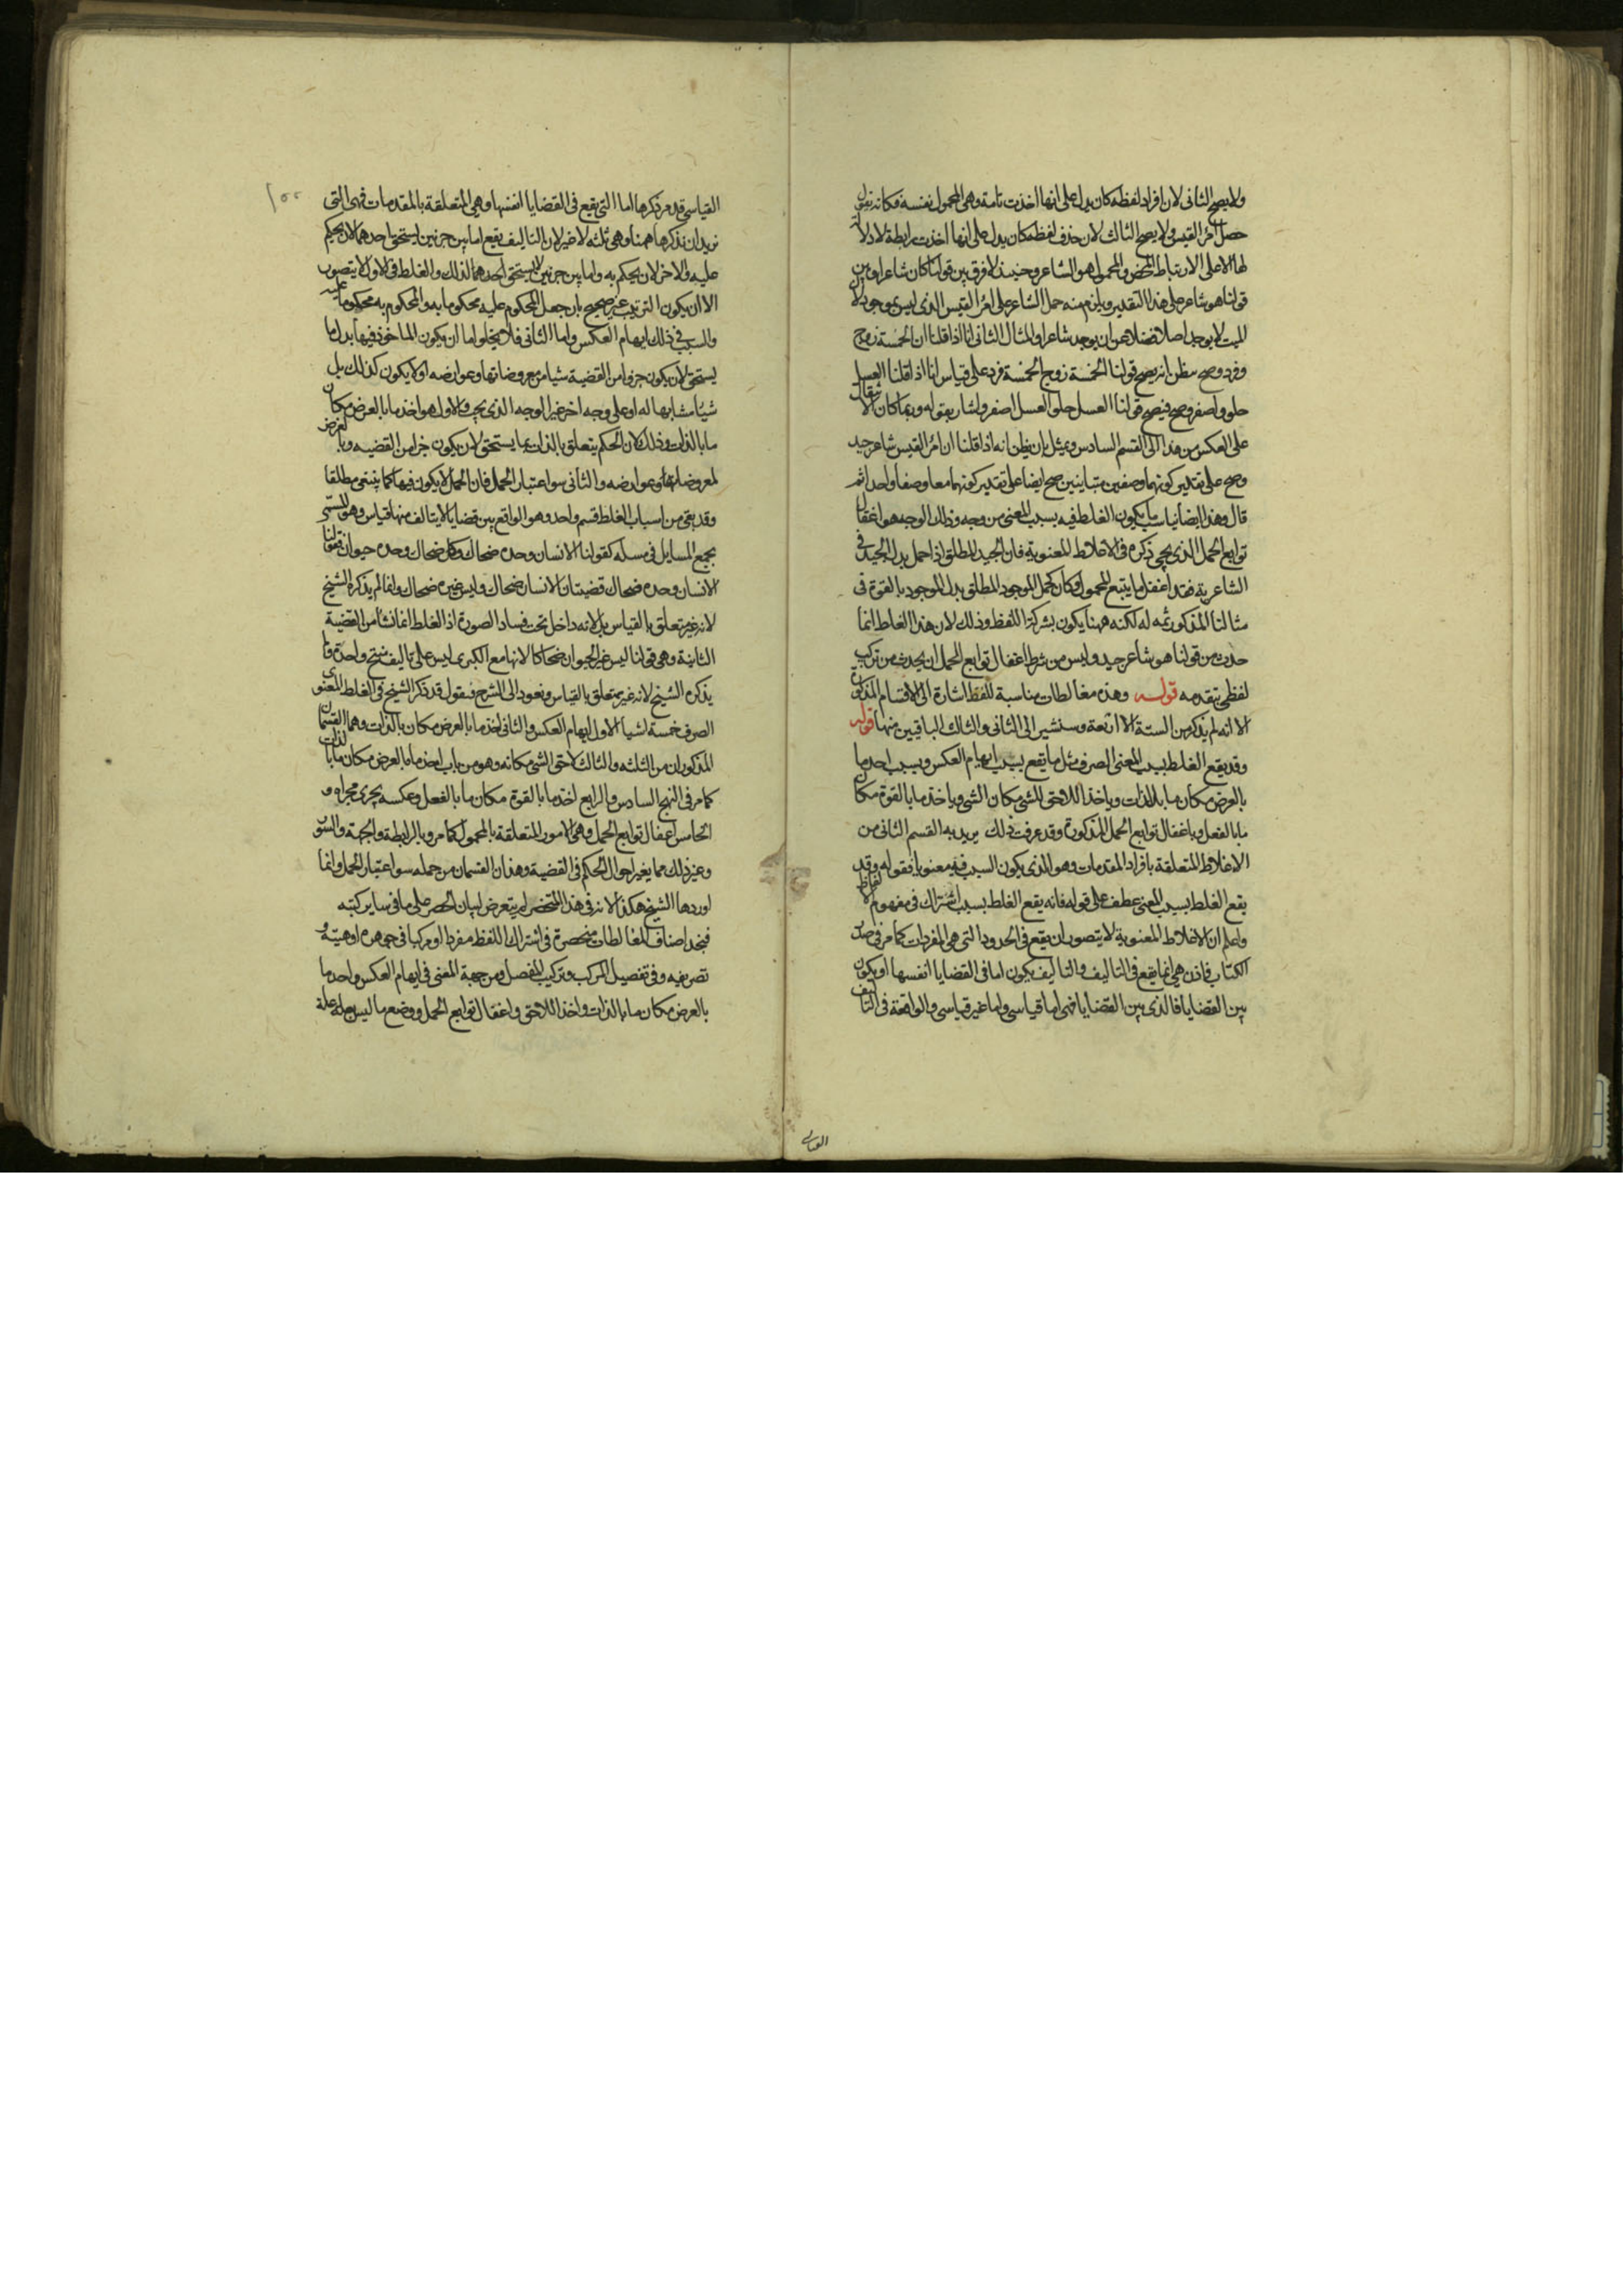 ولا يصح الثانى لان افراد لفظه كان يدل على انها اخذت تامة وهى المحمول نفسه فكانه يقول
حصل امرؤ القيس ولا يصح الثالث لان حذف لفظه كان يدل على انها اخذت رابطة لا دلالة
لها الا على الارتباط المحض والمحمول هو الشاعر وحينئذ لا فرق بين قولنا كان شاعرا وبين
قولنا هو شاعر على هذا التقدير ويلزم منه حمل الشاعر على امرؤ القيس الذى ليس بموجود لان
الميت لا يوجد اصلا فضلا عن ان يوجد شاعرا والمثال الثانى انا اذا قلنا ان الخمسة زوج
وفرد وصح مظن انه يصح قولنا الخمسة زوج الخمسة فرد على قياس انا اذا قلنا العسل
حلو واصفر وصح فيصح قولنا العسل حلو العسل اصفر واشار بقوله وربما كان الانتقال
على العكس من هذا الى القسم السادس ويمثل بان يظن انه اذا قلنا ان امرؤ القيس شاعر جيد
وصح على تقدير كونهما وصفين متباينين صح ايضا على تقدير كونهما معا وصفا واحدا ثم
قال وهذا ايضا يكون الغلط فيه بسبب المعنى من وجه وذلك الوجه هو اغفال
توابع الحمل الذى يجى ذكره فى الاغلاط المعنوية فان الجيد المطلق اذا حمل بدل الجيد فى
الشاعرية فقد اغفل ما يتبع المحمول وكان كحمل الموجود المطلق بدل الموجود بالقوة فى
مثالنا المذكور ثمه له لكنه ههنا يكون بشركة اللفظ وذلك لان هذا الغلط انما
حدث من قولنا هو شاعر جيد وليس من شرط اغفال توابع الحمل ان يحدث من تركيب
لفظى يتقدمه قوله وهذه مغالطات مناسبة للفظ اشارة الى الاقسام المذكورة
الا انه لم يذكر من الستة الا اربعة وسنشير الى الثانى والثالث الباقيين منها قوله
وقد يقع الغلط بسبب المعنى الصرف مثل ما يقع بسبب ايهام العكس وبسبب اخذ ما
بالعرض مكان ما بالذات وباخذ اللاحق للشى مكان الشى وباخذ ما بالقوة مكان
ما بالفعل وباغفال توابع الحمل المذكورة وقد عرفت ذلك يريد به القسم الثانى من
الاغلاط المتعلقة بافراد المقدمات وهو الذى يكون السبب فيه معنويا فقوله وقد
يقع الغلط بسبب المعنى عطف على قوله فانه يقع الغلط بسبب اشتراك فى مفهوم الالفاظ
واعلم ان الاغلاط المعنوية لا يتصور ان يقع فى الحدود التى هى المفردات كما مر فى صدر
الكتاب فاذن هى انما يقع فى التاليف والتاليف يكون اما فى القضايا انفسها او يكون
بين القضايا فالذى بين القضايا فهى اما قياسى واما غير قياسى والواقعة فى التاليف
القياسى قد مر ذكرها اما التى يقع فى القضايا انفسها وهى المتعلقة بالمقدمات فهى التى
نريد ان نذكرها ههنا وهى ثلثه لا غير لان التاليف يقع اما بين جزئين يستحق احدهما لان يحكم
عليه والاخر لان يحكم به واما بين جزئين لا يستحق احدهما لذلك والغلط فى الاول لا يتصور
الا ان يكون الترتيب غير صحيح بان جعل المحكوم عليه محكوما به والمحكوم به محكوما عليه
والسبب فى ذلك ايهام العكس واما الثانى فلا يخلوا اما ان يكون الماخوذ فيها بدل ما
يستحق لان يكون جزوا من القضية شيا من معروضاتها وعوارضه او لا يكون كذلك بل
شيا مشابها له او على وجه اخر غير الوجه الذى يجب والاول هو اخذ ما بالعرض مكان
ما بالذات وذلك لان الحكم يتعلق بالذات بما يستحق لان يكون جزا من القضيه وبالعرض
لمعروضاتها وعوارضه والثانى سوا اعتبار الحمل فان الحمل لا يكون فيها كما ينبغى مطلقا
وقد بقى من اسباب الغلط قسم واحد وهو الواقع بين قضايا لا يتالف منها قياس وهو المسمى
بجمع المسايل فى مسله كقولنا الانسان وحده ضحاك وكل ضحاك وحده حيوان فقولنا
الانسان وحده ضحاك قضيتان الانسان ضحاك وليس غيره ضحاك وانما لم يذكره الشيخ
لانه غير متعلق بالقياس بل لانه داخل تحت فساد الصورة اذ الغلط انما نشا من القضية
الثانية وهى قولنا ليس غير الحيوان ضحاكا لانها مع الكبرى ليس على تاليف منتج واحدة فلم
يذكره الشيخ لانه غير متعلق بالقياس ونعود الى الشرح فنقول قد ذكر الشيخ فى الغلط المعنوى
الصرف خمسة اشيا الاول ايهام العكس والثانى اخذ ما بالعرض مكان ما بالذات وهما القسمان
المذكوران من الثلثه والثالث لاحق الشى مكانه وهو من باب اخذ ما بالعرض مكان ما بالذات
كما مر فى النهج السادس والرابع اخذ ما بالقوة مكان ما بالفعل وعكسه يجرى مجراه و
الخامس اغفال توابع الحمل وهى الامور المتعلقة بالمحمول كما مر وبالرابطة والجهة والسور
وغير ذلك مما يغير احوال الحكم فى القضية وهذان القسمان من جمله سوا اعتبار الحمل وانما
اوردها الشيخ هكذا لانه فى هذا المختصر لم يتعرض لبيان الحصر على ما فى ساير كتبه
فنجد اصناف المغالطات منحصرة فى اشتراك اللفظ مفردا او مركبا فى جوهره او هيئته و
تصريفه وفى تفصيل المركب وتركيب المفصل ومن جهة المعنى فى ايهام العكس واخذ ما
بالعرض مكان ما بالذات واخذ اللاحق واغفال توابع الحمل ووضع ما ليس بعلة علة